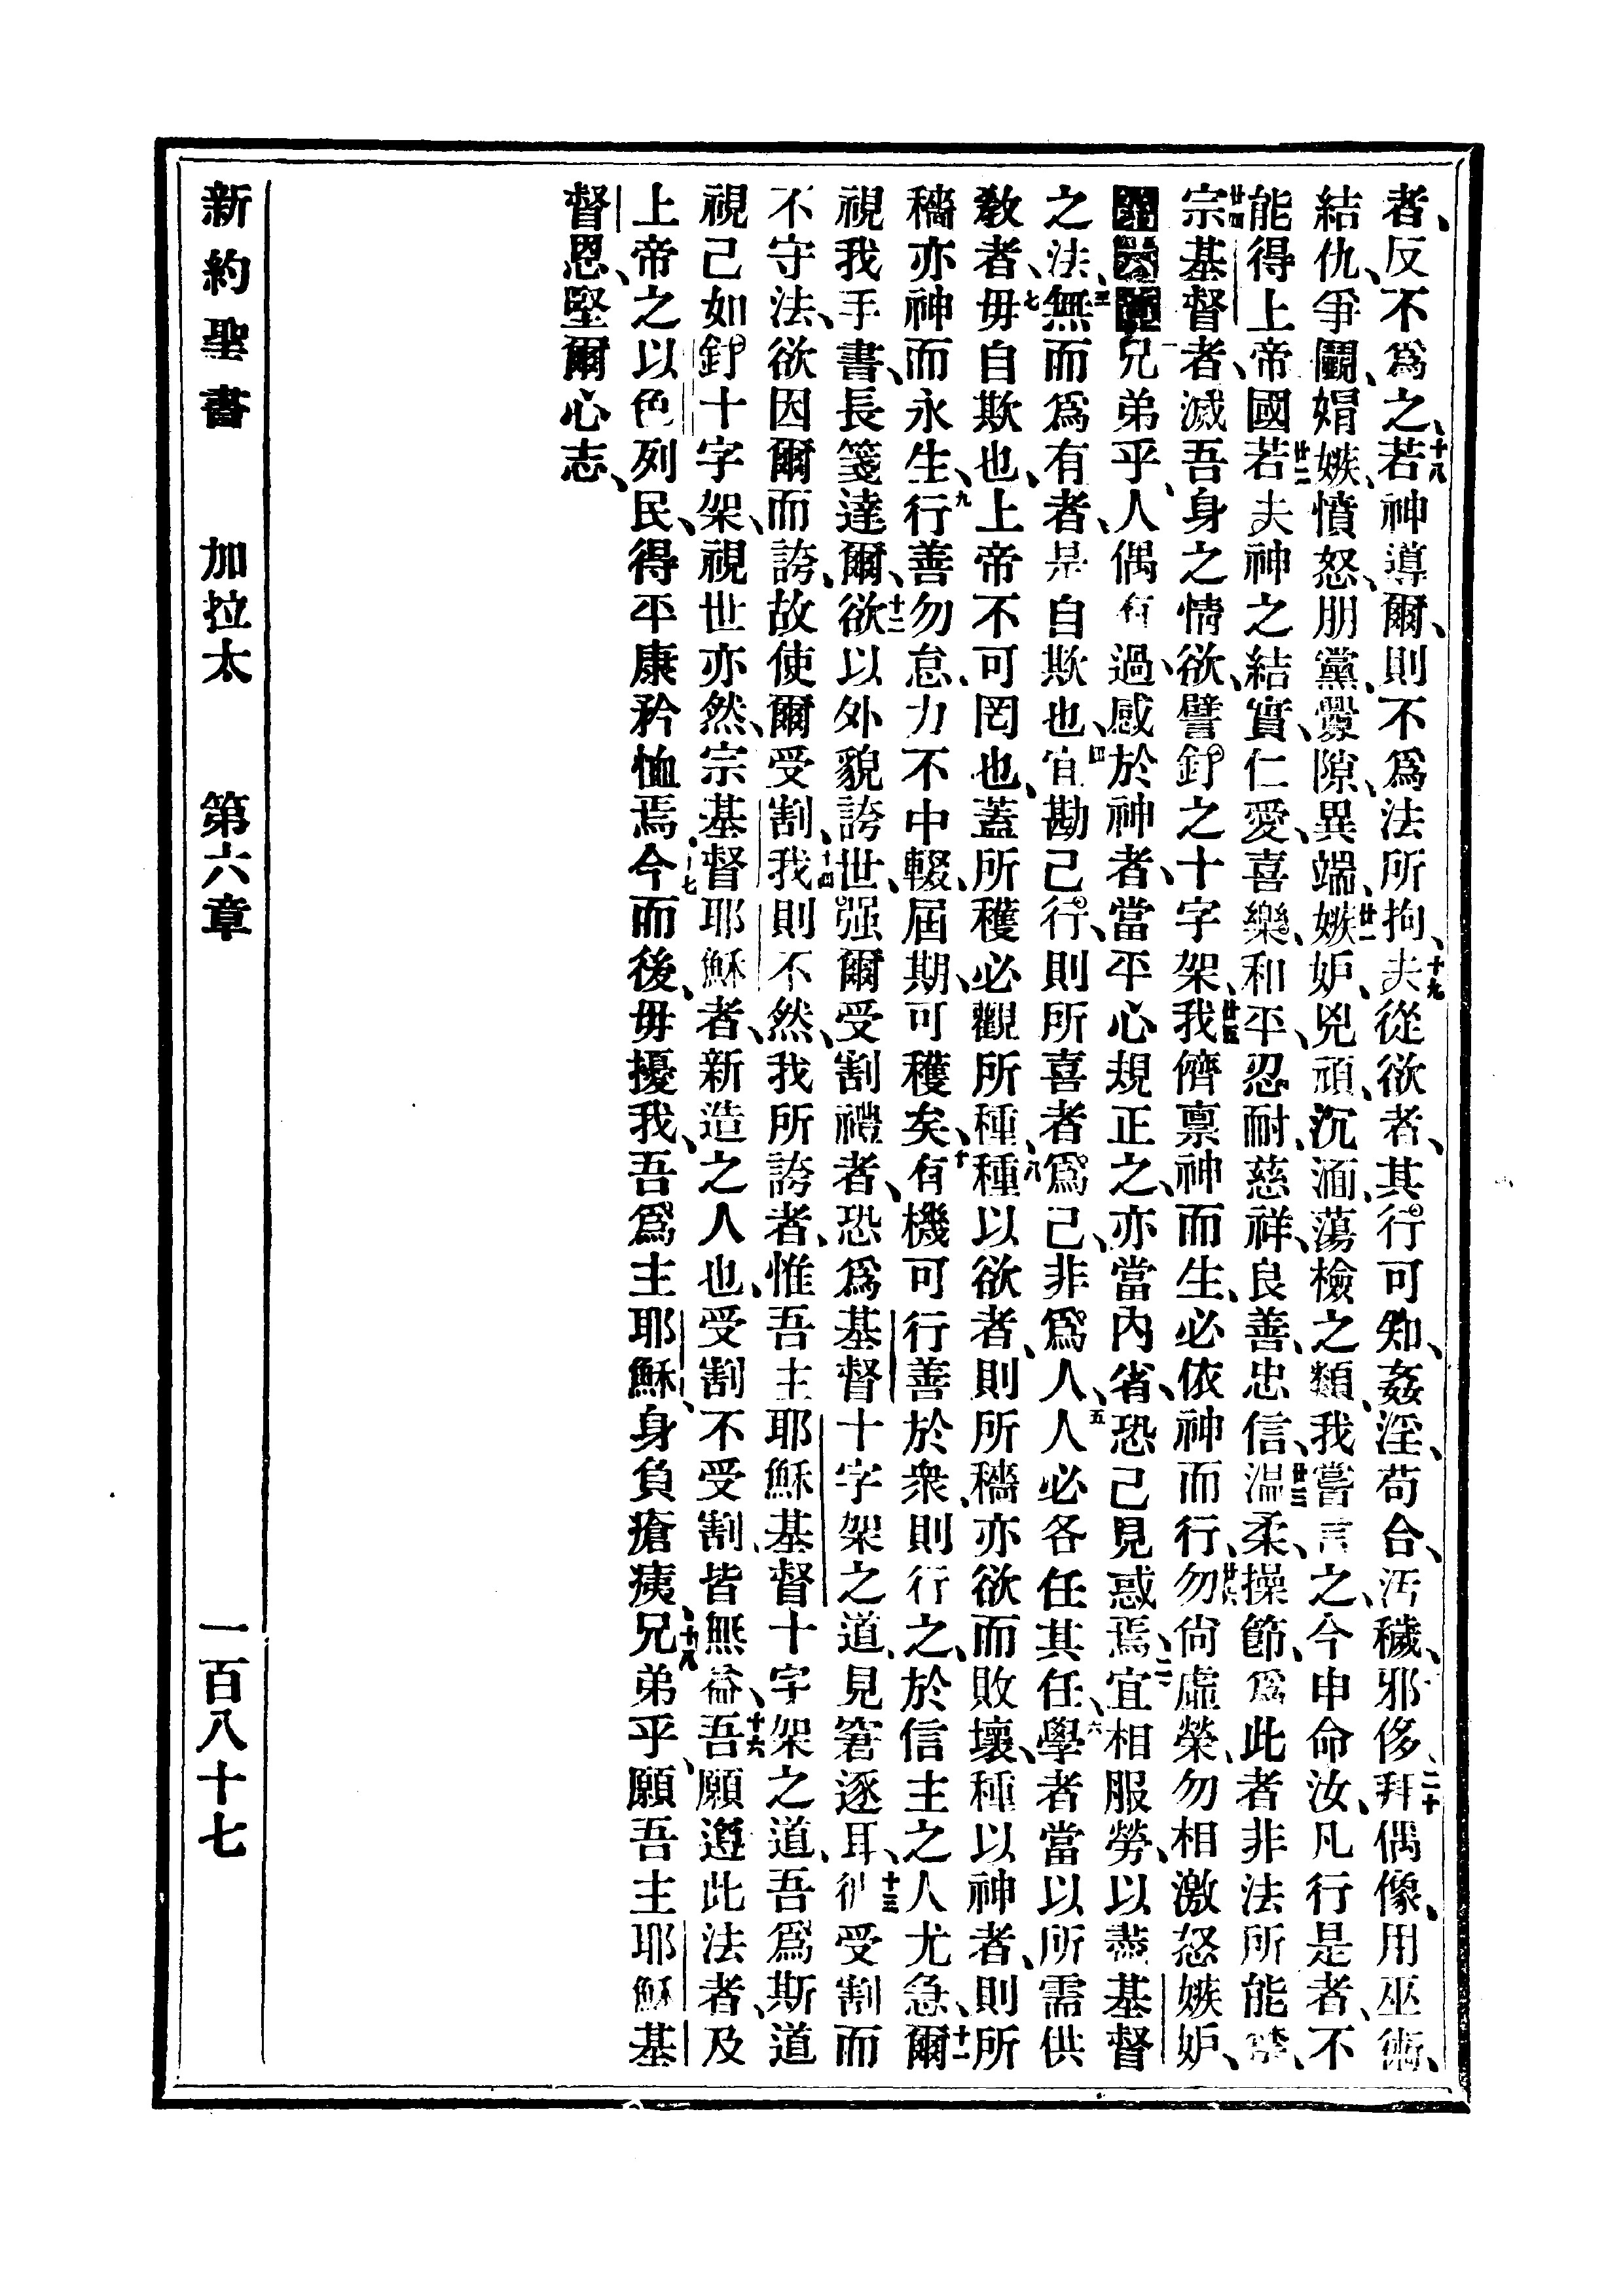 者、反不爲之、十八若神導爾、則不爲法所拘、十九夫從欲者、其行可知、姦淫、苟合、汚穢、邪侈、二十拜偶像、用巫術、
結仇、爭鬭、媢嫉、憤怒、朋黨、釁隙、異端、廿一嫉妒、兇頑、沉湎、蕩檢之類、我嘗言之、今申命汝、凡行是者、不
能得上帝國、廿二若夫神之結實、仁愛、喜樂、和平、忍耐、慈祥、良善、忠信、廿三温柔、操節、爲此者非法所能禁、
廿四宗基督者、滅吾身之情欲、譬釘之十字架、廿五我儕禀神而生、必依神而行、廿六勿尙虛榮、勿相激怒嫉妒、
第六章一兄弟乎、人偶有過、感於神者、當平心規正之、亦當內省、恐己見惑焉、二宜相服勞、以藎基督
之法、三無而爲有者、是自欺也、四宜勘己行、則所喜者爲己、非爲人、五人必各任其任、六學者當以所需供
敎者、七毋自欺也、上帝不可罔也、蓋所穫必觀所種、八種以欲者、則所穡亦欲而敗壞、種以神者、則所
穡亦神而永生、九行善勿怠、力不中輟、屆期可穫矣、十有機可行善於衆、則行之、於信主之人尤急、十一爾
視我手書、長箋達爾、十二欲以外貌誇世、强爾受割禮者、恐爲基督十字架之道、見窘逐耳、十三彼受割而
不守法、欲因爾而誇、故使爾受割、十四我則不然、我所誇者、惟吾主耶穌基督十字架之道、吾爲斯道
視己如釘十字架、視世亦然、宗基督耶穌者、新造之人也、受割不受割、皆無益、十六吾願遵此法者、及
上帝之以色列民、得平康矜恤焉、十七今而後、毋擾我、吾爲主耶穌、身負瘡痍、十八兄弟乎、願吾主耶穌基
督恩、堅爾心志、
新約聖書　加拉太　第六章　一百八十七